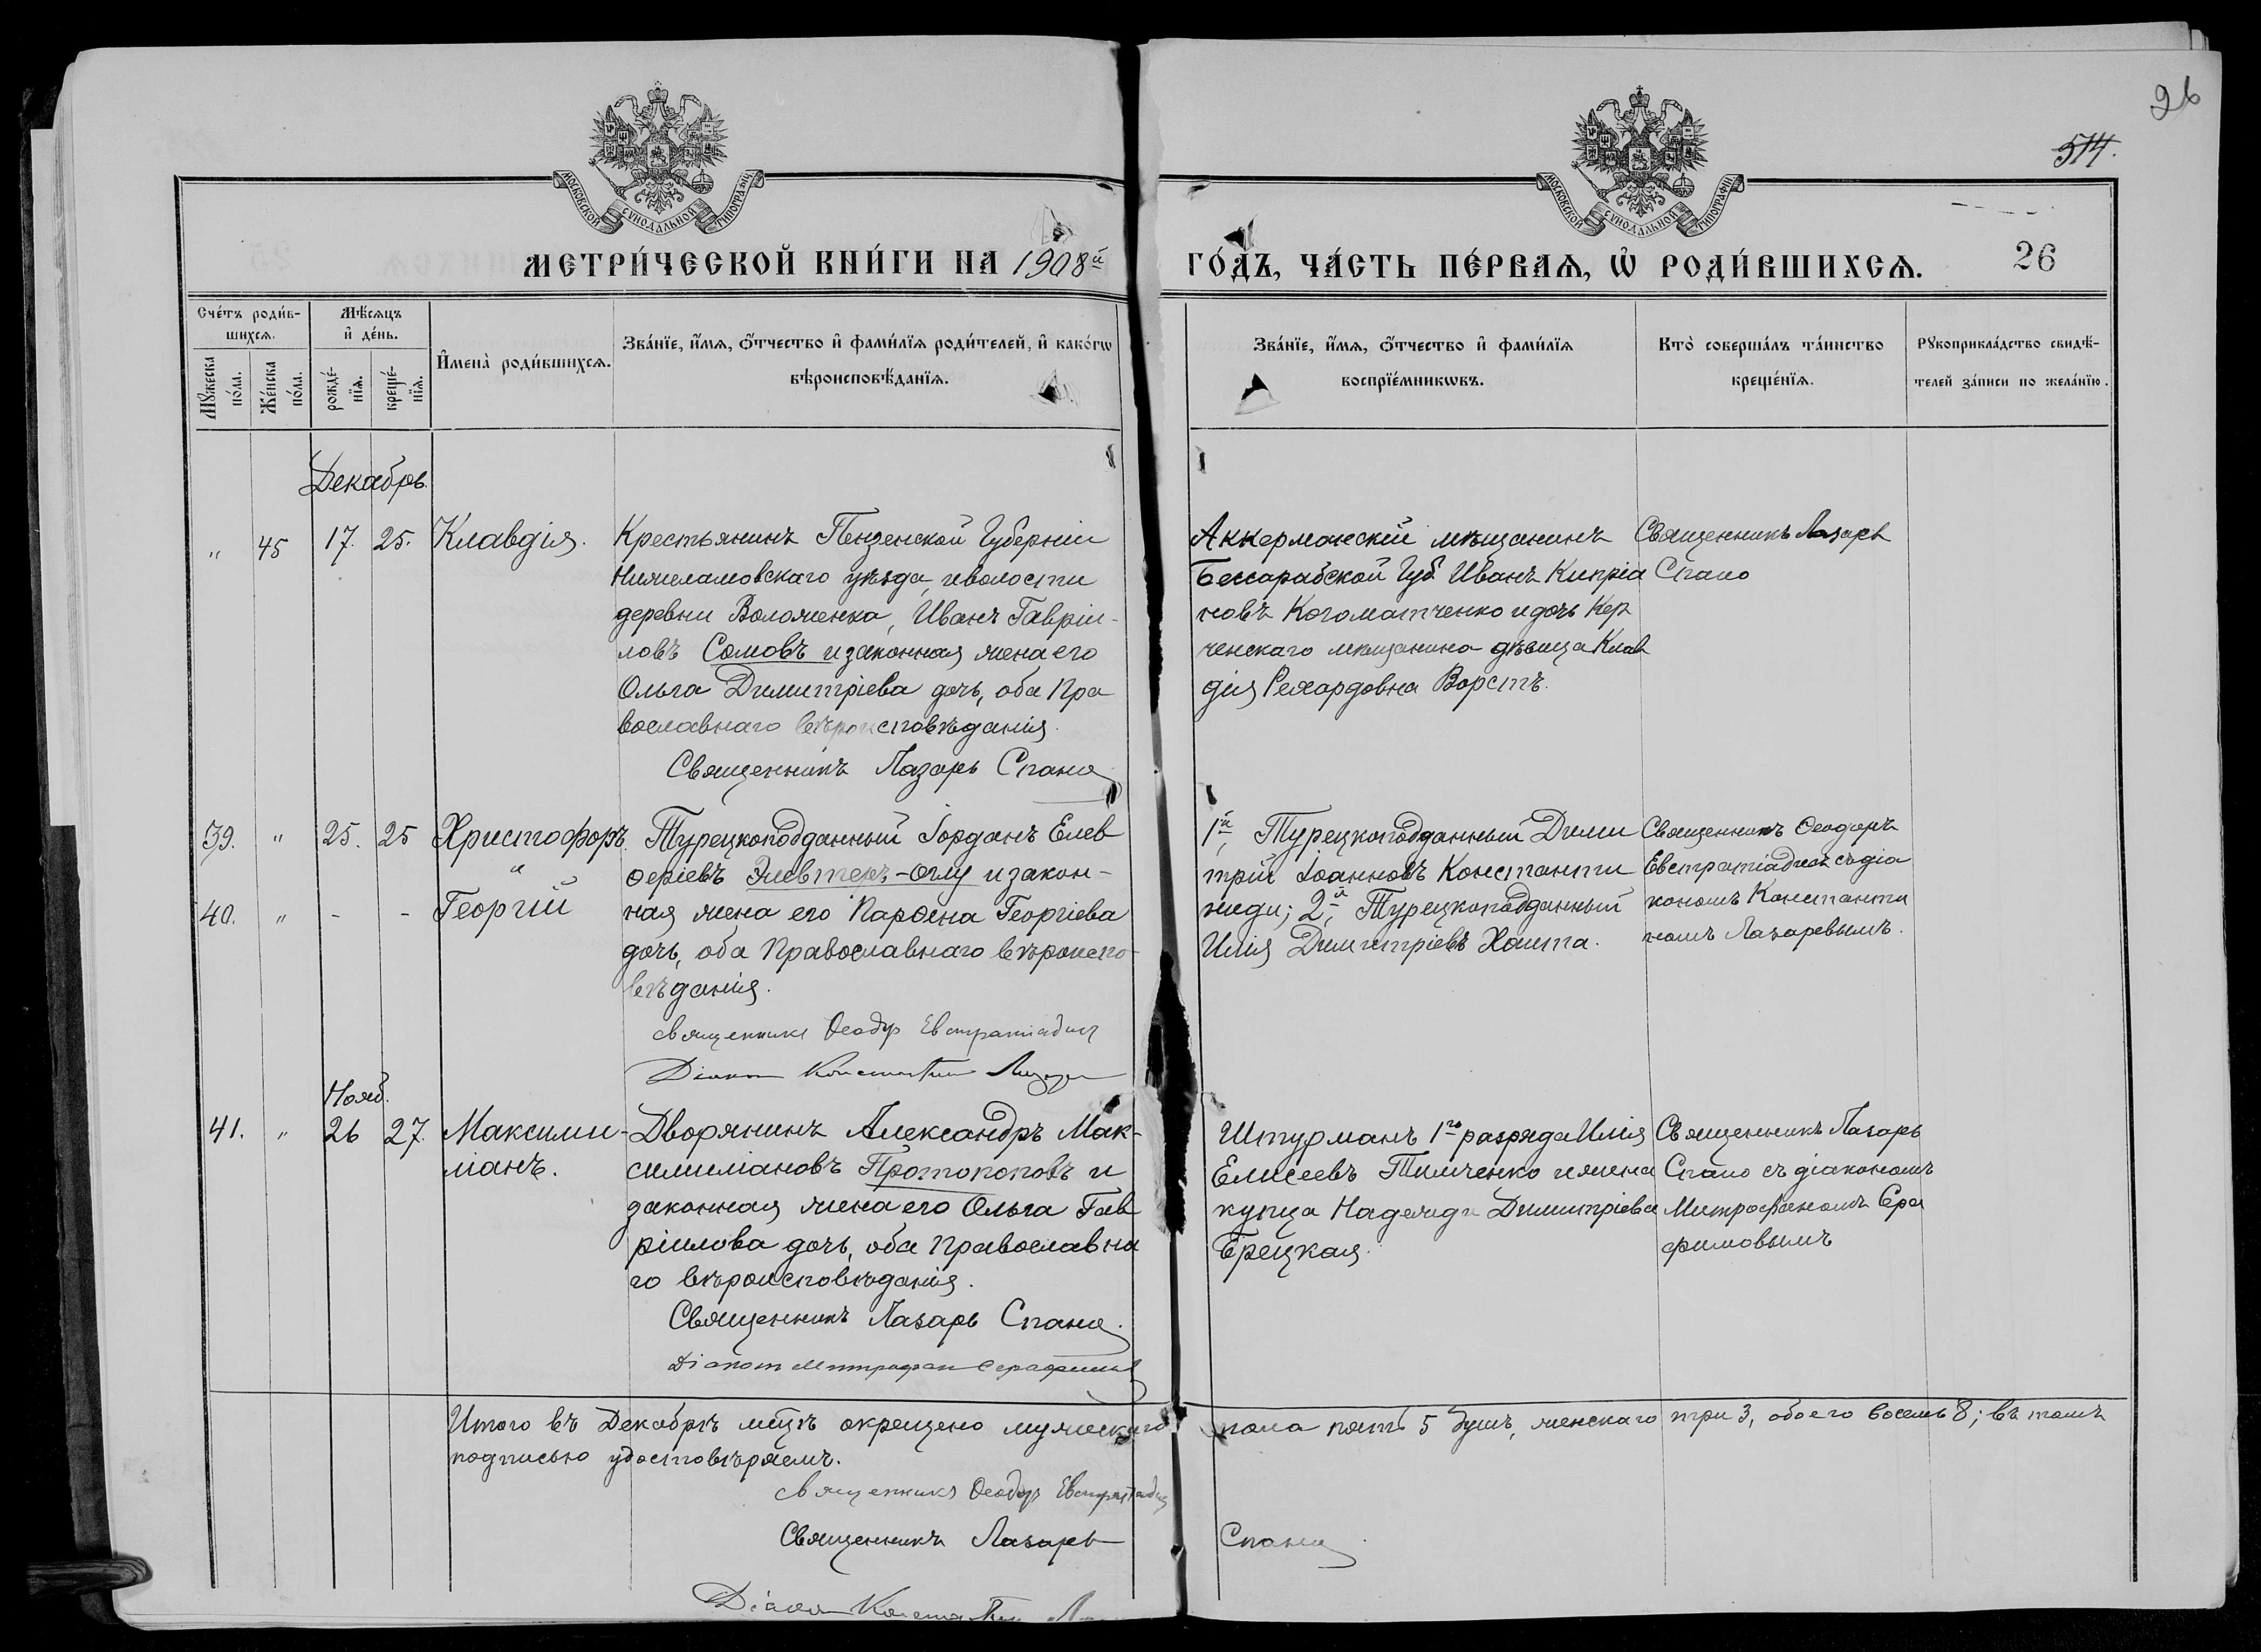 26
514.
МОСКОВСКОЙ СѴНОДАЛЬНОЙ ТИПОГРАФІИ
МОСКОВСКОЙ СѴНОДАЛЬНОЙ ТИПОГРАФІИ
МЕТРИ́ЧЕСКОЙ КНИ́ГИ НА 1908й
ГО́ДЪ, ЧА́СТЬ ПЕ́РВАѦ, Ѡ҆ РОДИ́ВШИХСѦ. 26
Сче́тъ роди́в-
шихсѧ.
Мѣ́сѧцъ
и҆ де́нь.
Мꙋ́жеска
по́ла.
Же́нска
по́ла.
рожде́-
нїѧ.
креще́-
нїѧ.
И҆мена̀ роди́вшихсѧ.
Зва́нїе, и҆́мѧ, ѻ҆́тчество и҆ фами́лїѧ роди́телей, и҆ како́гѡ
вѣроисповѣ́данїѧ.
Зва́нїе, и҆́мѧ, ѻ҆́тчество и҆ фами́лїѧ
воспрїе́мникѡвъ.
Кто̀ соверша́лъ та́инство
креще́нїѧ.
Рꙋкоприкла́дство свидѣ́-
телей за́писи по жела́нїю.
Декабрь.
" 45 17. 25. Клавдія.
Крестьянинъ Пензенской Губерніи
Нижнеломовскаго уѣзда, и волости
деревни Воложенка, Иванъ Гавріи-
ловъ Сомовъ и законная жена его
Ольга Димитріева дочь, оба Пра
вославнаго вѣроисповѣданія.
Священникъ Лазарь Спано
Аккерманскій мѣщанинъ
Бессарабской Губ. Иванъ Кипріа
новъ Когоматченко и дочь Кер
ченскаго мѣщанина дѣвица Клав
дія Рехардовна Ворстъ.
Священникъ Лазарь
Спано
39. " 25. 25 Христофоръ
"
40. " - - Георгій
Турецкоподданный Іорданъ Елев
ѳеріевъ Элевтеръ-Оглу и закон-
ная жена его Парѳена Георгіева
дочь, оба Православнаго вѣроиспо-
вѣданія.
Священникъ Ѳеодор Евстратіадисъ
Діакон Константин Лазарев
1й, Турецкоподданный Дими
трій Іоанновъ Константи
ниди; 2й, Турецкоподданный
Илія Димитріевъ Хаита.
Священникъ Ѳеодоръ
Евстратіадисъ съ діа
кономъ Константи
номъ Лазаревымъ.
Нояб.
41. " 26 27. Максими-
ліанъ.
Дворянинъ Александръ Мак-
симиліановъ Протопоповъ и
законная жена его Ольга Гав
ріилова дочь, оба Православна
го вѣроисповѣданія.
Священникъ Лазарь Спано.
Діакон Митрофан Серафимов
Штурманъ 1го разряда Илія
Елисеевъ Тимченко и жена
купца Надежда Димитріева
Ерецкая.
Священникъ Лазарь
Спано съ діакономъ
Митрофаномъ Сера
фимовымъ
Итого въ Декабрѣ мцѣ окрещено мужескаго пола пять 5 душъ, женскаго три 3, обоего восемь 8; въ томъ
подписью удостовѣряемъ.
Священникъ Ѳеодор Евстратіадис
Священникъ Лазарь Спано
Діакон Константин